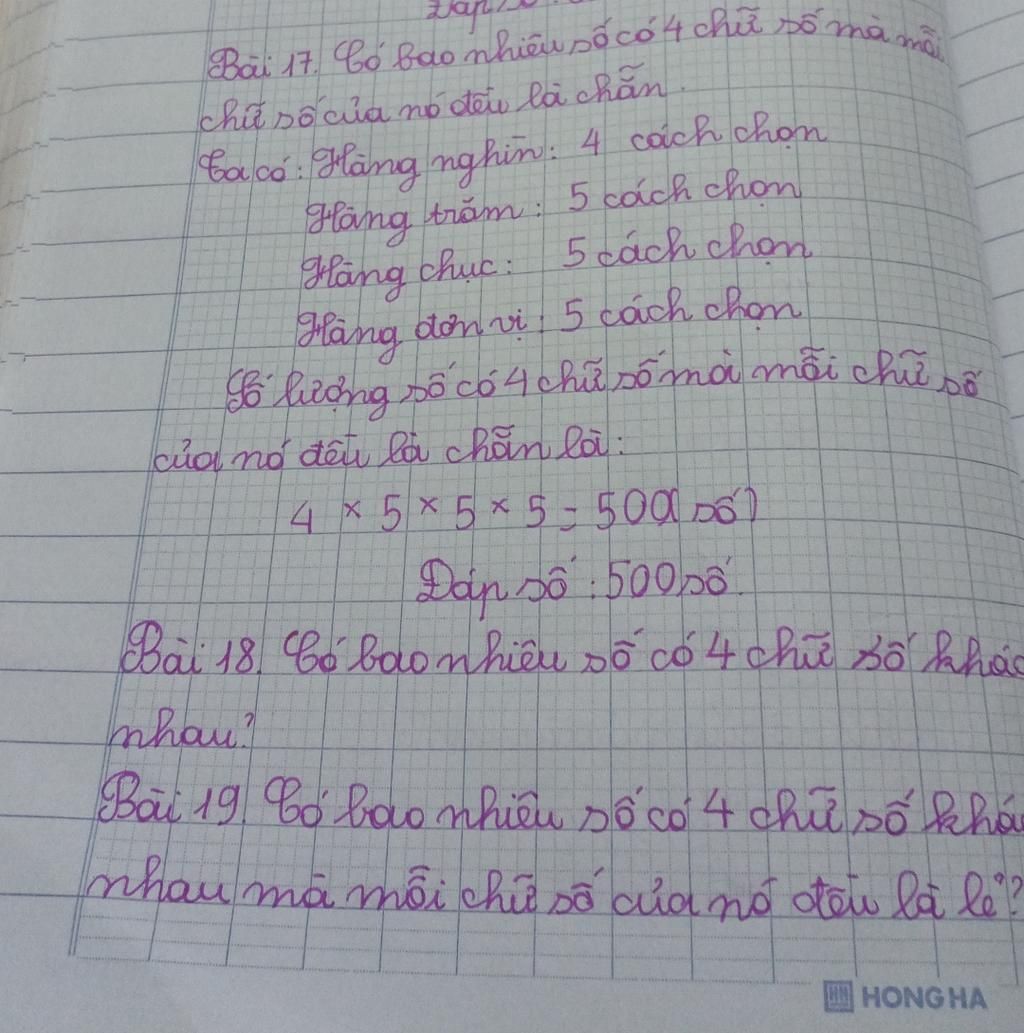 Bài 17. Có bao nhiêu số có 4 chữ số mà mỗi
chữ số của nó đều là chẵn.
Ta có: Hàng nghìn: 4 cách chọn
Hàng trăm: 5 cách chọn
Hàng chục: 5 cách chọn
Hàng đơn vị: 5 cách chọn
Số lượng số có 4 chữ số mà mỗi chữ số
của nó đều là chẵn là:
4 × 5 × 5 × 5 = 500(số)
Đáp số: 500 số.
Bài 18. Có bao nhiêu số có 4 chữ số khác
nhau?
Bài 19. Có bao nhiêu số có 4 chữ số khá
nhau mà mỗi chữ số của nó đều là lẻ?
HH HONG HA